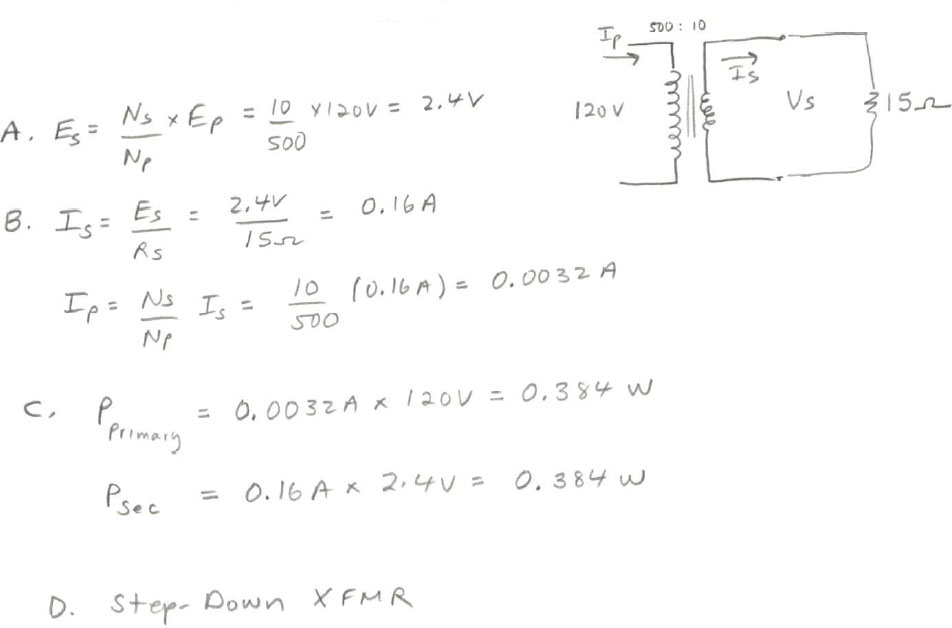 500 : 10
Ip
Is
120V
Vs
15Ω
A. Es = Ns/Np × Ep = 10/500 × 120V = 2.4V
B. Is = Es/Rs = 2.4V/15Ω = 0.16A
Ip = Ns/Np Is = 10/500 (0.16A) = 0.0032 A
C. PPrimary = 0.0032A × 120V = 0.384 W
Psec = 0.16A × 2.4V = 0.384 W
D. Step-Down XFMR